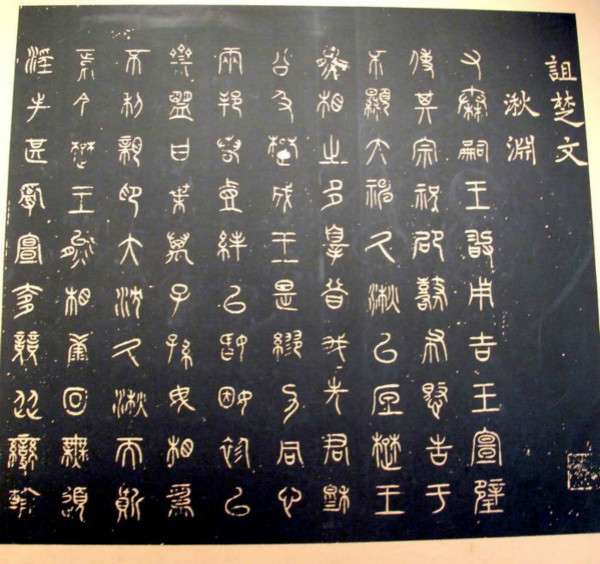 詛楚文
湫淵
又秦嗣王敢用吉玉宣璧
使其宗祝邵鼛布憼告于
不顯大神久湫以底楚王
熊相之多辠昔我先君穆
公及楚成王是繆力同心
兩邦若壹絆以婚姻袗以
齋盟曰枼萬子孫毋相為
不利親卬大沈久湫而質
焉今楚王熊相康回無道
淫失甚亂宣奓競從變輸